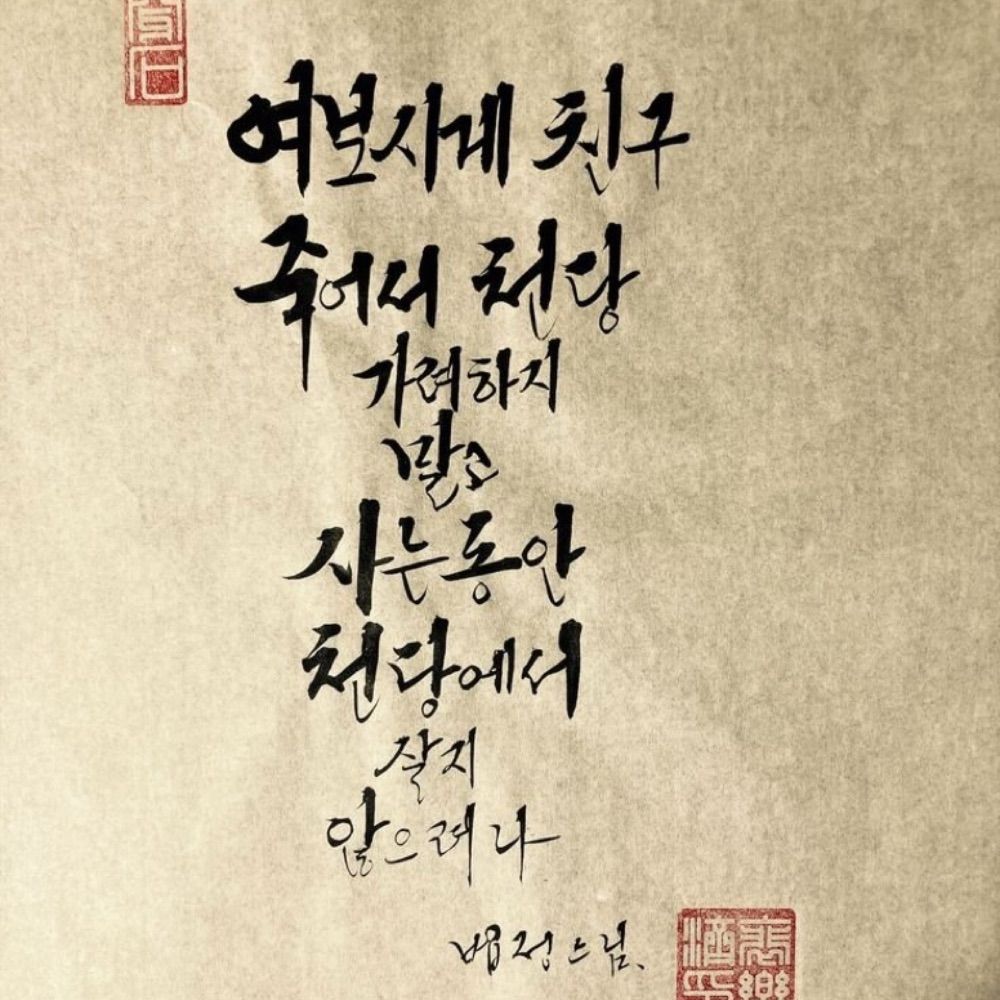 여보사게 친구
죽어서 천당
가려하지
말소
사는동안
천당에서
살지
않으려나
법정스님.